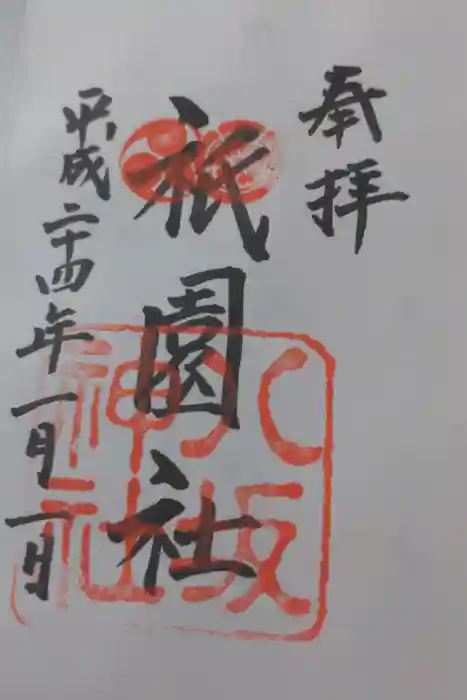 奉拝
祇園社
八坂
神社
平成二十四年一月一日